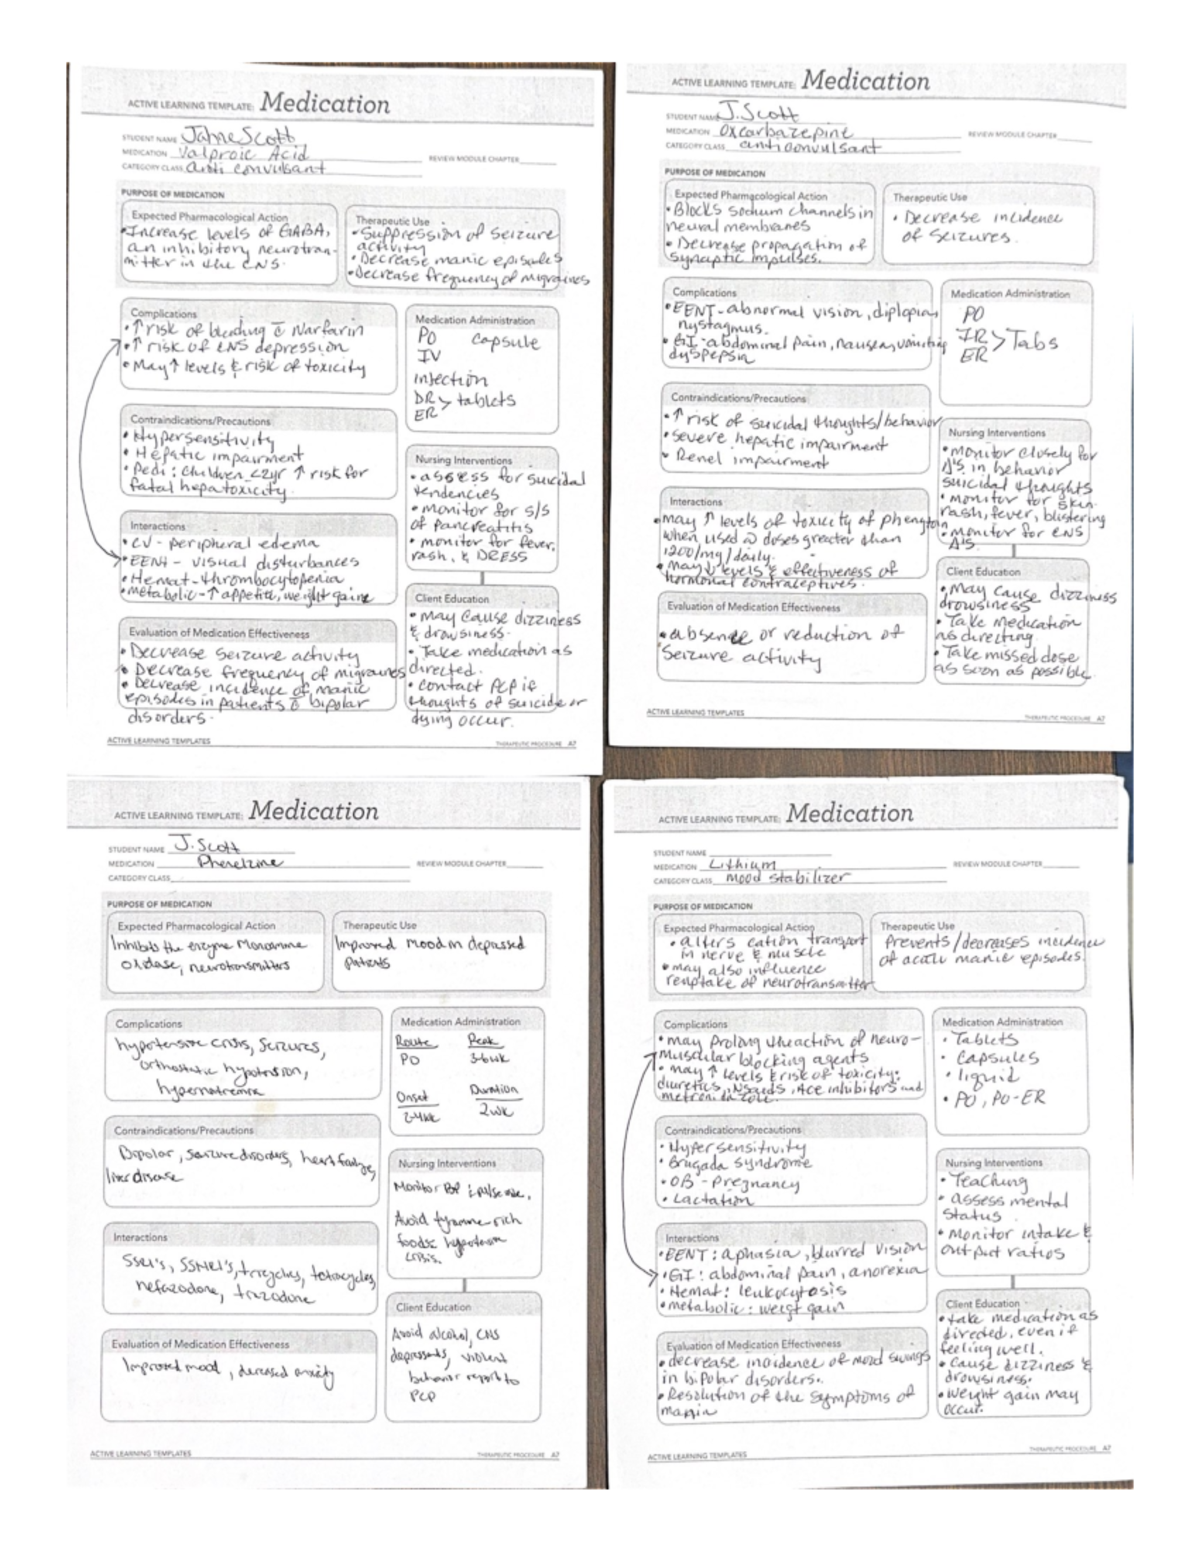 ACTIVE LEARNING TEMPLATE: Medication
STUDENT NAME Jahne Scott
MEDICATION Valproic Acid
REVIEW MODULE CHAPTER
CATEGORY CLASS anti convulsant
PURPOSE OF MEDICATION
Expected Pharmacological Action
• Increase levels of GABA,
an inhibitory neurotran-
mitter in the CNS.
Therapeutic Use
• Suppression of seizure
activity
• Decrease manic episodes
• Decrease frequency of migraines
Complications
• ↑ risk of bleeding c̄ Warfarin
• ↑ risk of CNS depression
• May ↑ levels & risk of toxicity
Medication Administration
PO capsule
IV
injection
DR > tablets
ER
Contraindications/Precautions
• Hypersensitivity
• Hepatic impairment
• Pedi: children <2yr ↑ risk for
fatal hepatoxicity.
Nursing Interventions
• assess for suicidal
tendencies
• monitor for s/s
of pancreatitis
• monitor for fever,
rash, & DRESS
Interactions
• CV - peripheral edema
• EENT - visual disturbances
• Hemat - thrombocytopenia
• metabolic - ↑ appetite, weight gain
Client Education
• may cause dizziness
& drowsiness.
• Take medication as
directed.
• contact PCP if
thoughts of suicide or
dying occur.
Evaluation of Medication Effectiveness
• Decrease seizure activity
• Decrease frequency of migraines
• Decrease incidence of manic
episodes in patients c̄ bipolar
disorders.
ACTIVE LEARNING TEMPLATES
THERAPEUTIC PROCEDURE A7
ACTIVE LEARNING TEMPLATE: Medication
STUDENT NAME J. Scott
MEDICATION Oxcarbazepine
REVIEW MODULE CHAPTER
CATEGORY CLASS anticonvulsant
PURPOSE OF MEDICATION
Expected Pharmacological Action
• Blocks sodium channels in
neural membranes
• Decrease propagation of
synaptic impulses.
Therapeutic Use
• Decrease incidence
of seizures.
Complications
• EENT - abnormal vision, diplopia,
nystagmus.
• GI - abdominal pain, nausea, vomiting
dyspepsia
Medication Administration
PO
IR > Tabs
ER
Contraindications/Precautions
• ↑ risk of suicidal thoughts/behavior
• severe hepatic impairment
• Renel impairment
Nursing Interventions
• monitor closely for
Δ's in behavior
suicidal thoughts
• monitor for skin
rash, fever, blistering
• monitor for CNS
Δ's.
Interactions
• may ↑ levels of toxicity of phenytoin
when used @ doses greater than
1200/mg/daily.
• may ↓ levels & effectiveness of
hormonal contraceptives.
Client Education
• May cause dizziness
drowsiness
• Take medication
as directing.
• Take missed dose
as soon as possible.
Evaluation of Medication Effectiveness
• absence or reduction of
seizure activity
ACTIVE LEARNING TEMPLATES
THERAPEUTIC PROCEDURE A7
ACTIVE LEARNING TEMPLATE: Medication
STUDENT NAME J. Scott
MEDICATION Phenelzine
REVIEW MODULE CHAPTER
CATEGORY CLASS
PURPOSE OF MEDICATION
Expected Pharmacological Action
Inhibits the enzyme Monoamine
oxidase, neurotransmitters
Therapeutic Use
Improved mood in depressed
patients
Complications
hypotensive crisis, seizures,
orthostatic hypotension,
hypernatremia
Medication Administration
Route Peak
PO 3-6wk
Onset Duration
2-4wk 2wk
Contraindications/Precautions
Bipolar, seizure disorders, heart failure,
liver disease
Nursing Interventions
Monitor BP & pulse rate,
Avoid tyramine rich
foods: hypertension
crisis.
Interactions
SSRI's, SSNRI's, tricyclics, tetracycles,
nefazodone, trazodone
Client Education
Avoid alcohol, CNS
depressants, violent
behavior report to
PCP
Evaluation of Medication Effectiveness
Improved mood, decreased anxiety
ACTIVE LEARNING TEMPLATES
THERAPEUTIC PROCEDURE A7
ACTIVE LEARNING TEMPLATE: Medication
STUDENT NAME
MEDICATION Lithium
REVIEW MODULE CHAPTER
CATEGORY CLASS mood stabilizer
PURPOSE OF MEDICATION
Expected Pharmacological Action
• alters cation transport
in nerve & muscle
• may also influence
reuptake of neurotransmitter
Therapeutic Use
Prevents/decreases incidence
of acute manic episodes.
Complications
• may prolong the action of neuro-
muscular blocking agents
• may ↑ levels & risk of toxicity:
diuretics, Nsaids, Ace inhibitors and
metronidazole.
Medication Administration
• Tablets
• Capsules
• liquid
• PO, PO-ER
Contraindications/Precautions
• Hypersensitivity
• Brugada syndrome
• OB - Pregnancy
• Lactation
Nursing Interventions
• Teaching
• assess mental
status
• Monitor intake &
output ratios
Interactions
• EENT: aphasia, blurred vision
• GI: abdominal pain, anorexia
• Hemat: leukocytosis
• metabolic: weight gain
Client Education
• take medication as
directed, even if
feeling well.
• cause dizziness &
drowsiness.
• Weight gain may
occur.
Evaluation of Medication Effectiveness
• decrease incidence of mood swings
in bipolar disorders.
• Resolution of the symptoms of
mania
ACTIVE LEARNING TEMPLATES
THERAPEUTIC PROCEDURE A7